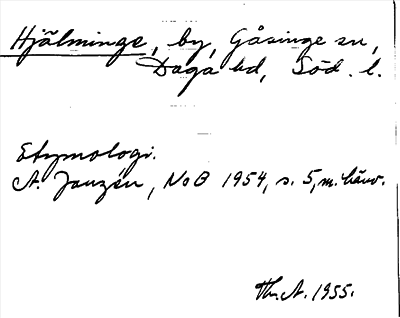 Hjälminge, by, Gåsinge sn,
Daga hd, Söd. l.
Etymologi.
A. Janzén, NoB 1954, s. 5, m. hänv.
Th. A. 1955.